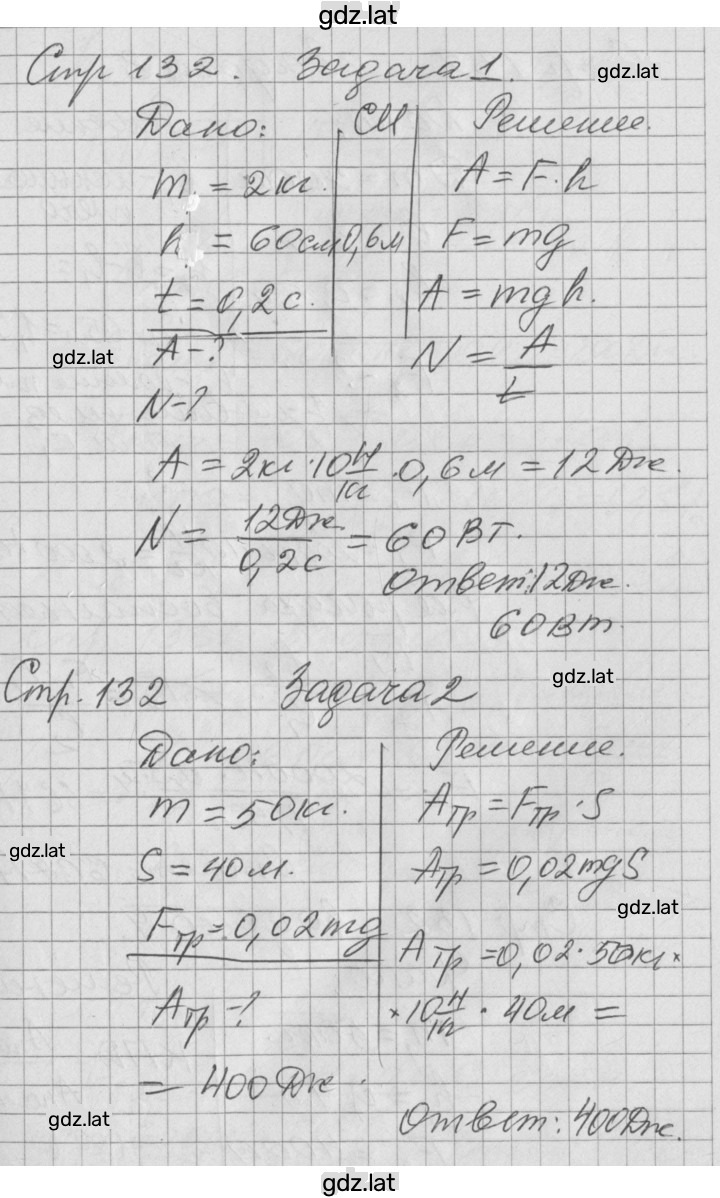 gdz.lat
Стр 132. Задача 1.
gdz.lat
Дано: СИ Решение.
m = 2кг. A = F·h
h = 60см 0,6м F = mg
t = 0,2с. A = mgh.
gdz.lat
A - ? N = A/t
N - ?
A = 2кг · 10 Н/кг · 0,6м = 12Дж.
N = 12Дж/0,2с = 60 Вт.
Ответ: 12Дж.
60Вт.
gdz.lat
Стр. 132 Задача 2
Дано: Решение.
m = 50кг. Aтр = Fтр · S
gdz.lat
S = 40м. Aтр = 0,02mgS
gdz.lat
Fтр = 0,02mg Aтр = 0,02 · 50кг ×
Aтр - ? × 10 Н/кг · 40м =
= 400Дж.
gdz.lat
Ответ: 400Дж.
gdz.lat